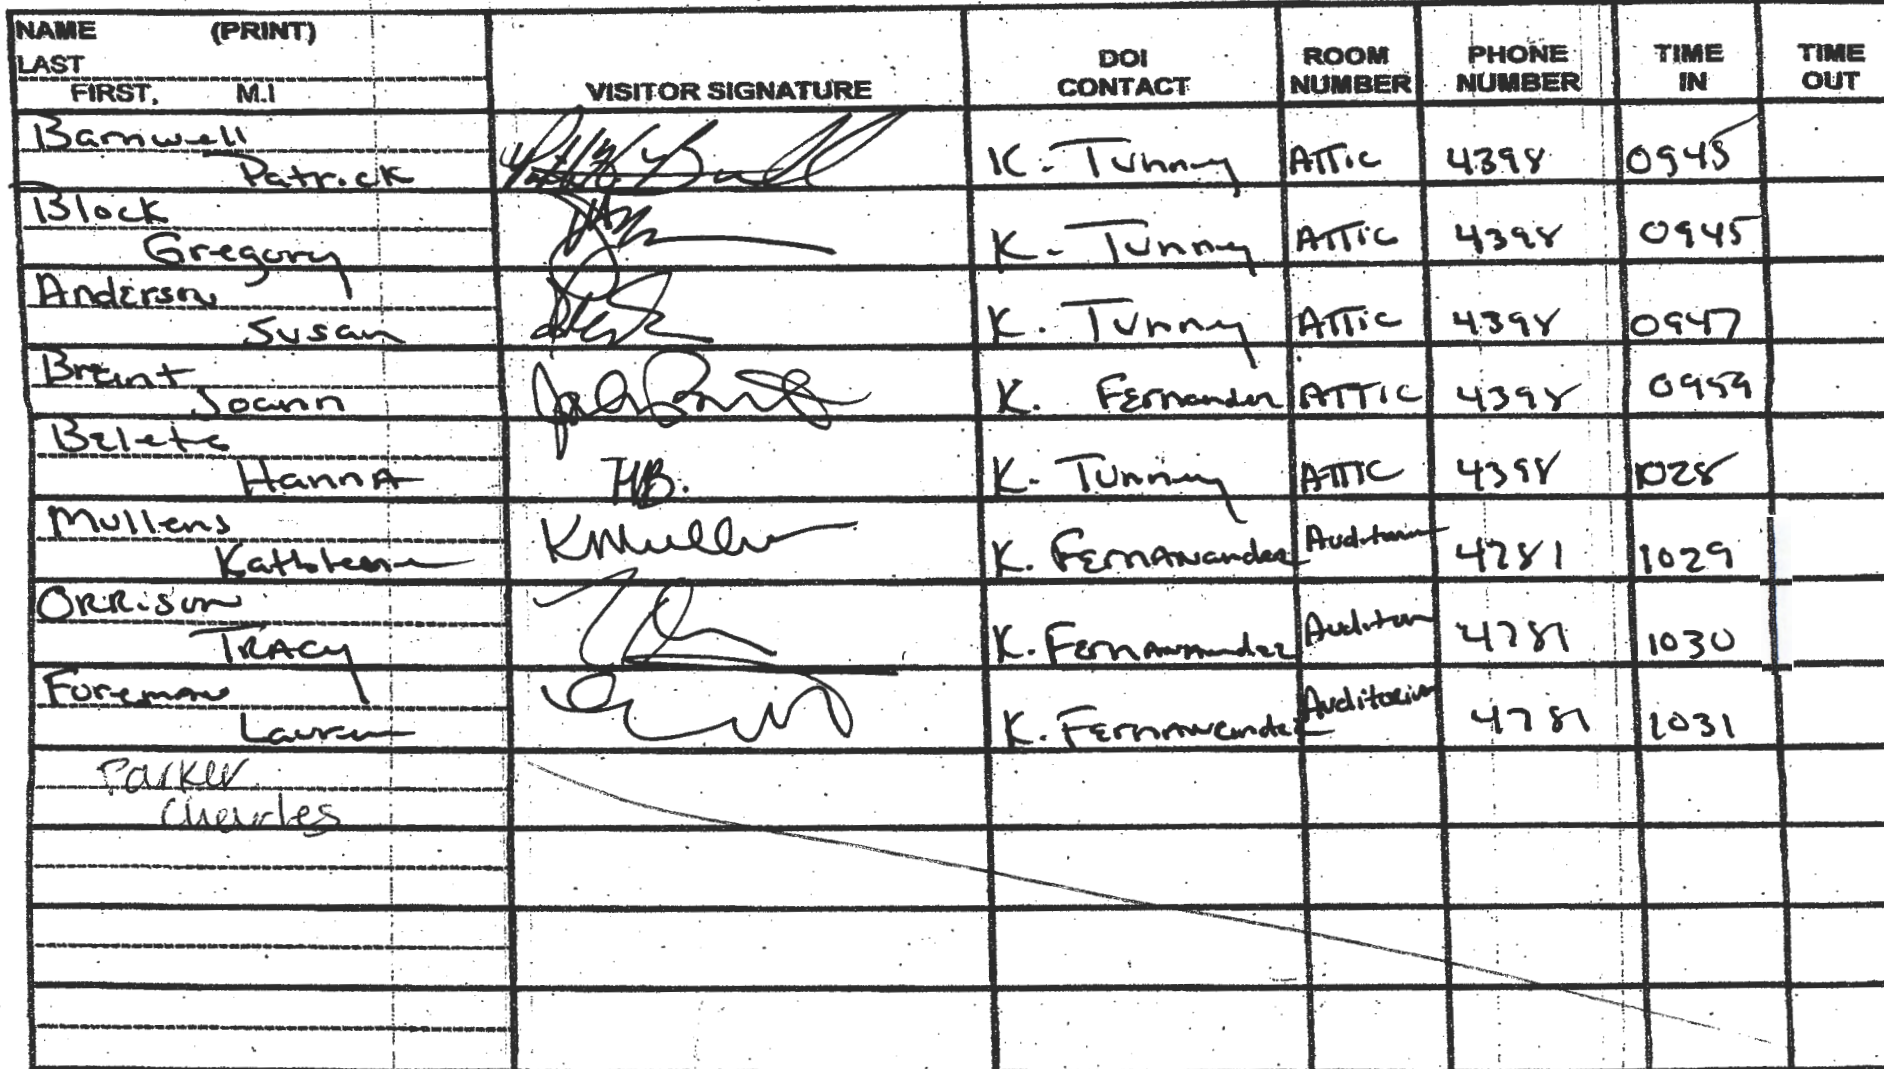 NAME (PRINT)
LAST
FIRST, M.I
VISITOR SIGNATURE
DOI CONTACT
ROOM NUMBER
PHONE NUMBER
TIME IN
TIME OUT
Barnwell
Patrick K. Tunney ATTic 4398 0945
Block
Gregory K. Tunney ATTic 4398 0945
Anderson
Susan K. Tunney ATTic 4398 0947
Brant
Joann K. Fernander ATTIC 4398 0959
Belete
HannA HB. K. Tunney ATTIC 4398 1028
Mullens
Kathleen KMullen K. Auditorium 4781 1029
ORRison
TRACy K. 4781 1030
Foreman
Lauren K. Auditorium 4781 1031
Parker
Charles